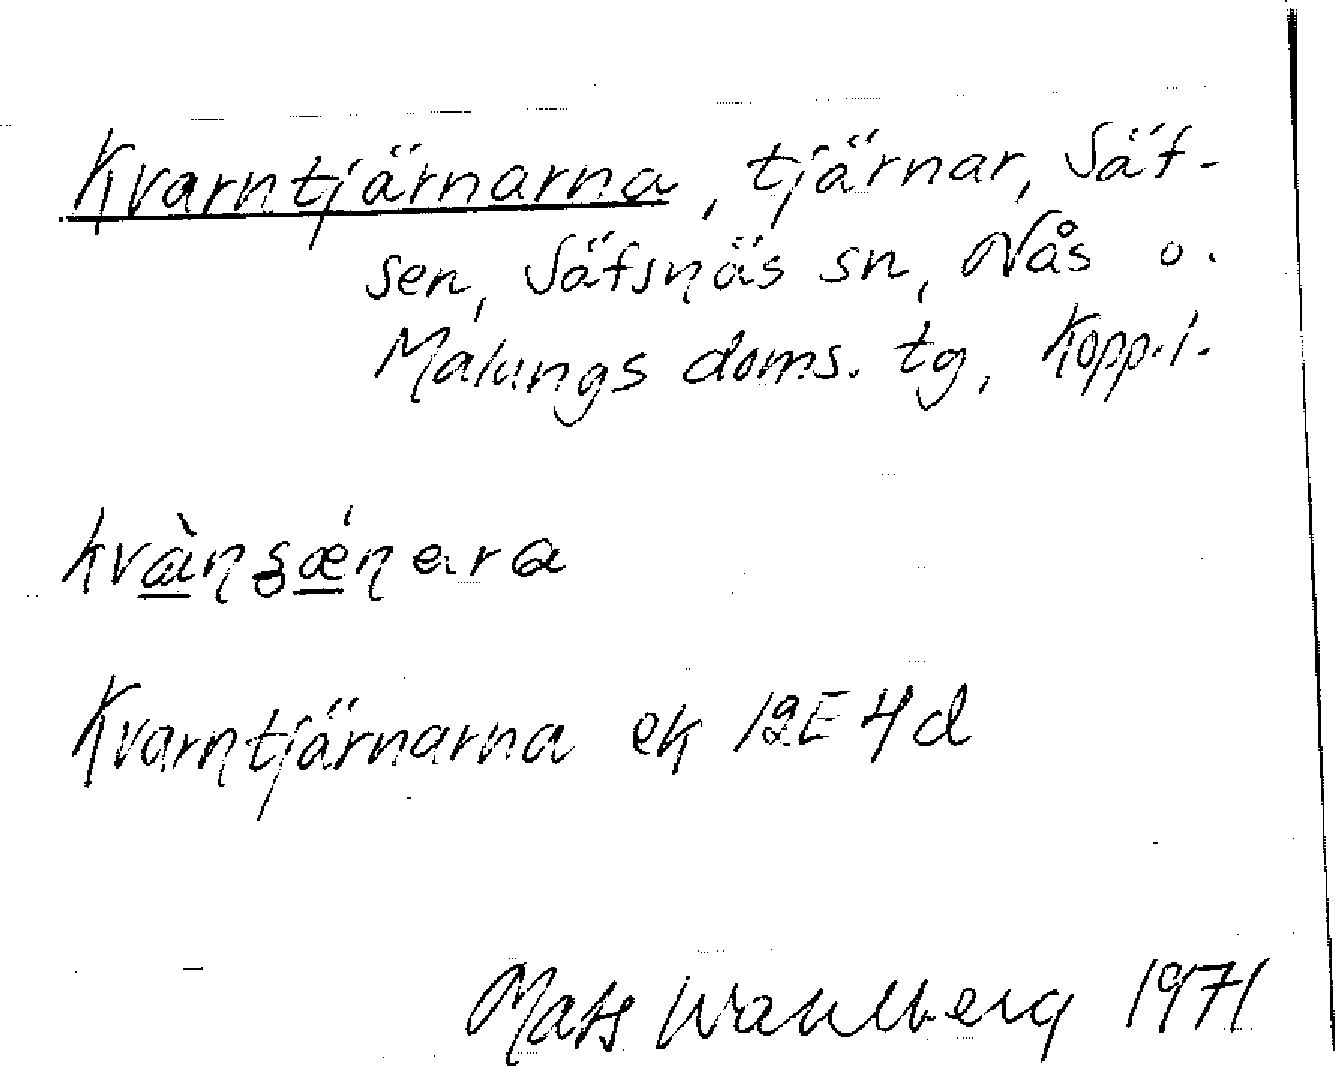 Kvarntjärnarna, tjärnar, Säf-
sen, Säfsnäs sn, Nås o.
Malungs doms. tg, Kopp. l.
Kvarntjärnarna ek 12E4d
Mats Wahlberg 1971